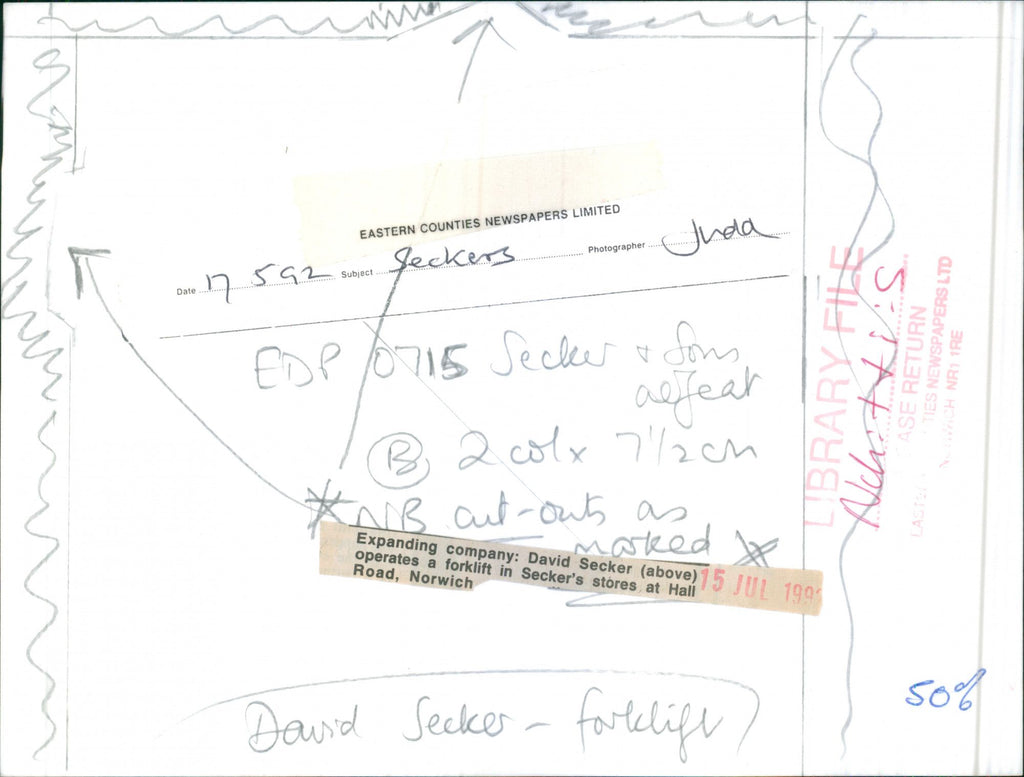 EASTERN COUNTIES NEWSPAPERS LIMITED
Date 17 5 92 Subject Seckers Photographer Judd
EDP 0715 Secker + Sons
adfeat
B 2 col x 7 1/2 cm
* NB cut-outs as
marked *
Expanding company: David Secker (above)
operates a forklift in Secker's stores at Hall
Road, Norwich
15 JUL 199
David Secker - forklift
LIBRARY FILE
ASE RETURN
TIES NEWSPAPERS LTD
NR1 1RE
50%